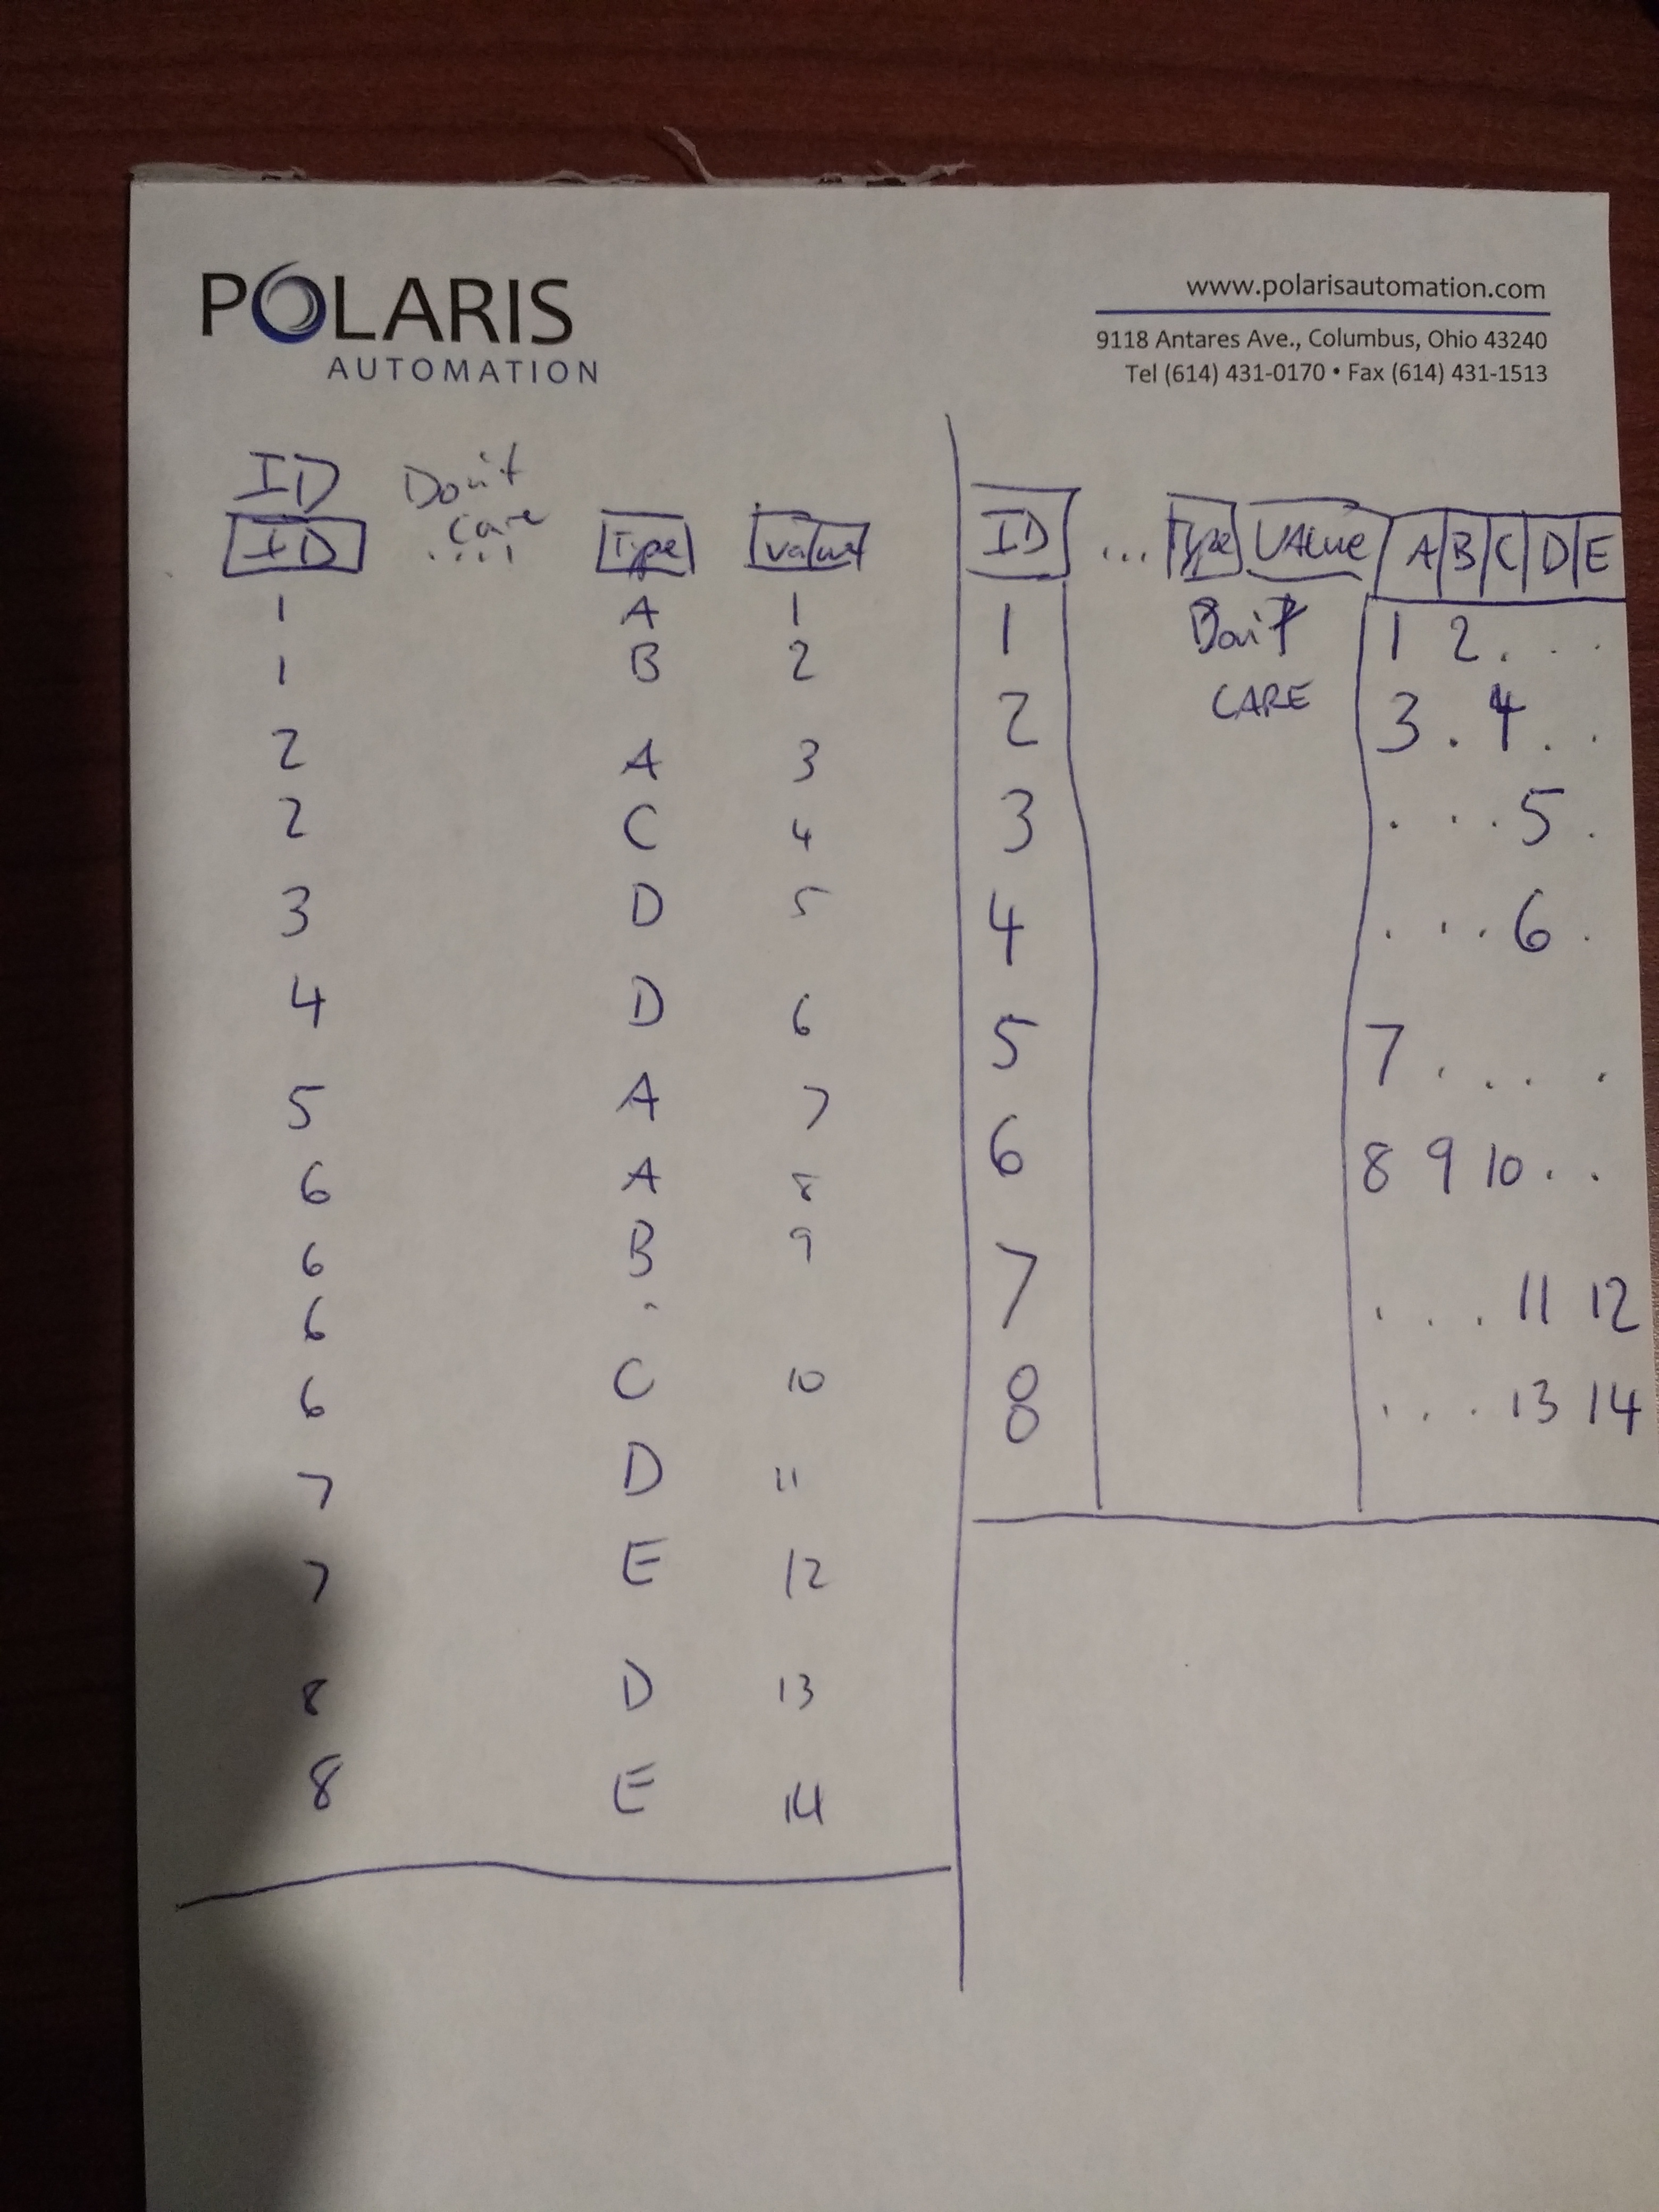 POLARIS
AUTOMATION
www.polarisautomation.com
9118 Antares Ave., Columbus, Ohio 43240
Tel (614) 431-0170 • Fax (614) 431-1513
ID Don't
care
ID .... Type Value
1 A 1
1 B 2
2 A 3
2 C 4
3 D 5
4 D 6
5 A 7
6 A 8
6 B 9
6 .
6 C 10
7 D 11
7 E 12
8 D 13
8 E 14
ID ... Type VALUE A B C D E
1 Don't 1 2 . . .
2 CARE 3 . 4 . .
3 . . . 5 .
4 . . . 6 .
5 7 . . . .
6 8 9 10 . .
7 . . . 11 12
8 . . . 13 14